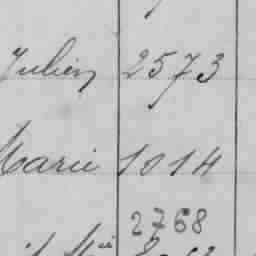 Julien 2573
Marie 1014
2768